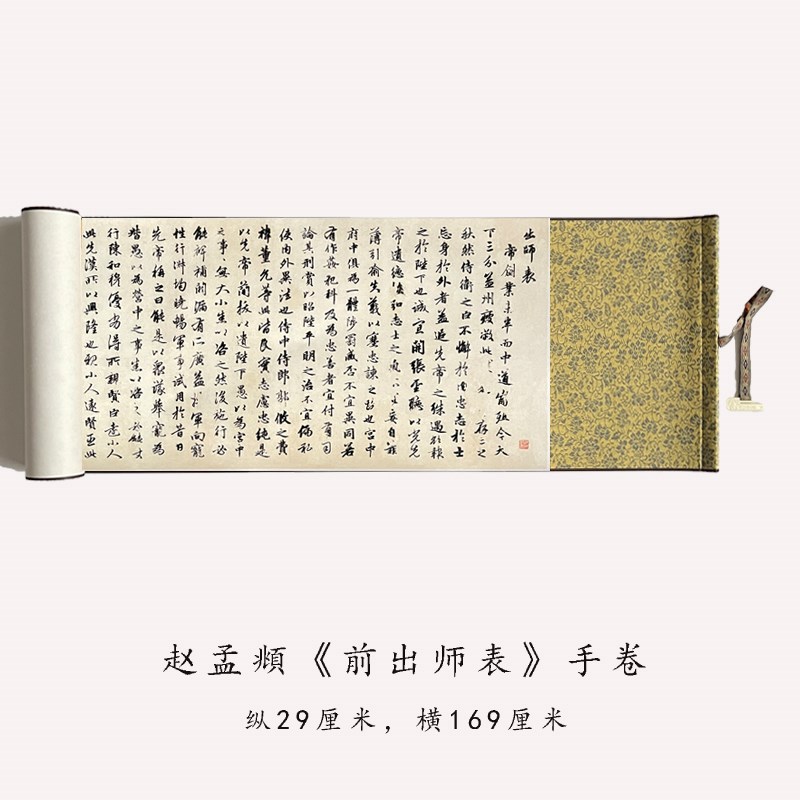 出師表
帝創業未半而中道崩殂今天
下三分益州疲敝此存亡之
秋然侍衛之臣不懈於內忠志於士
忘身於外者蓋追先帝之殊遇欲報
之於陛下也誠宜開張聖聽以光先
帝遺德恢和志士之氣不宜妄自菲
薄引喻失義以塞忠諫之路也宮中
府中俱為一體陟罰臧否不宜異同若
有作姦犯科及為忠善者宜付有司
論其刑賞以昭陛平明之治不宜偏私
使內外異法也侍中侍郎攸之費
禕董允等此皆良實志慮忠純是
以先帝簡拔以遺陛下愚以為宮中
之事無大小悉以咨之然後施行必
能裨補闕漏有所廣益將軍向寵
性行淑均曉暢軍事試用於昔日
先帝稱之曰能是以眾議舉寵為
督愚以為營中之事悉以咨之必能
行陳和穆優劣得所親賢臣遠小人
此先漢所以興隆也親小人遠賢臣此
赵孟頫《前出师表》手卷
纵29厘米，横169厘米